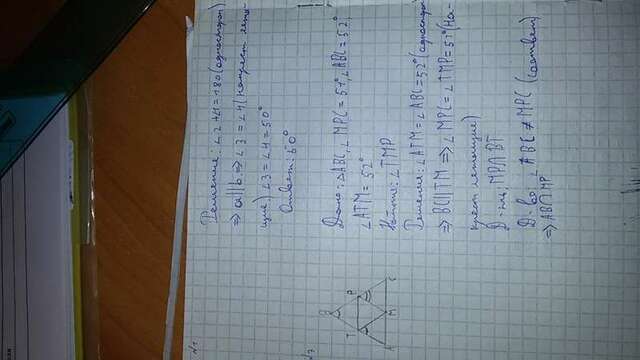 №1
Решение: ∠2+∠1=180 (односторон)
⇒ a||b ⇒ ∠3 = ∠4 (накрест лежа-
щие) ∠3=∠4=50°
Ответ: 50°
№3
B
T P
A M C
Дано: △ABC, ∠MPC = 51°, ∠ABC = 52°,
∠ATM = 52°
Найти: ∠TMP
Решение: ∠ATM = ∠ABC=52° (односторон)
⇒ BC||TM ⇒ ∠MPC=∠TMP=51° (На-
крест лежащие)
Д-ть: MP∩BT
Д-во: ∠ABC ≠ MPC (соответ)
⇒ AB∩MP